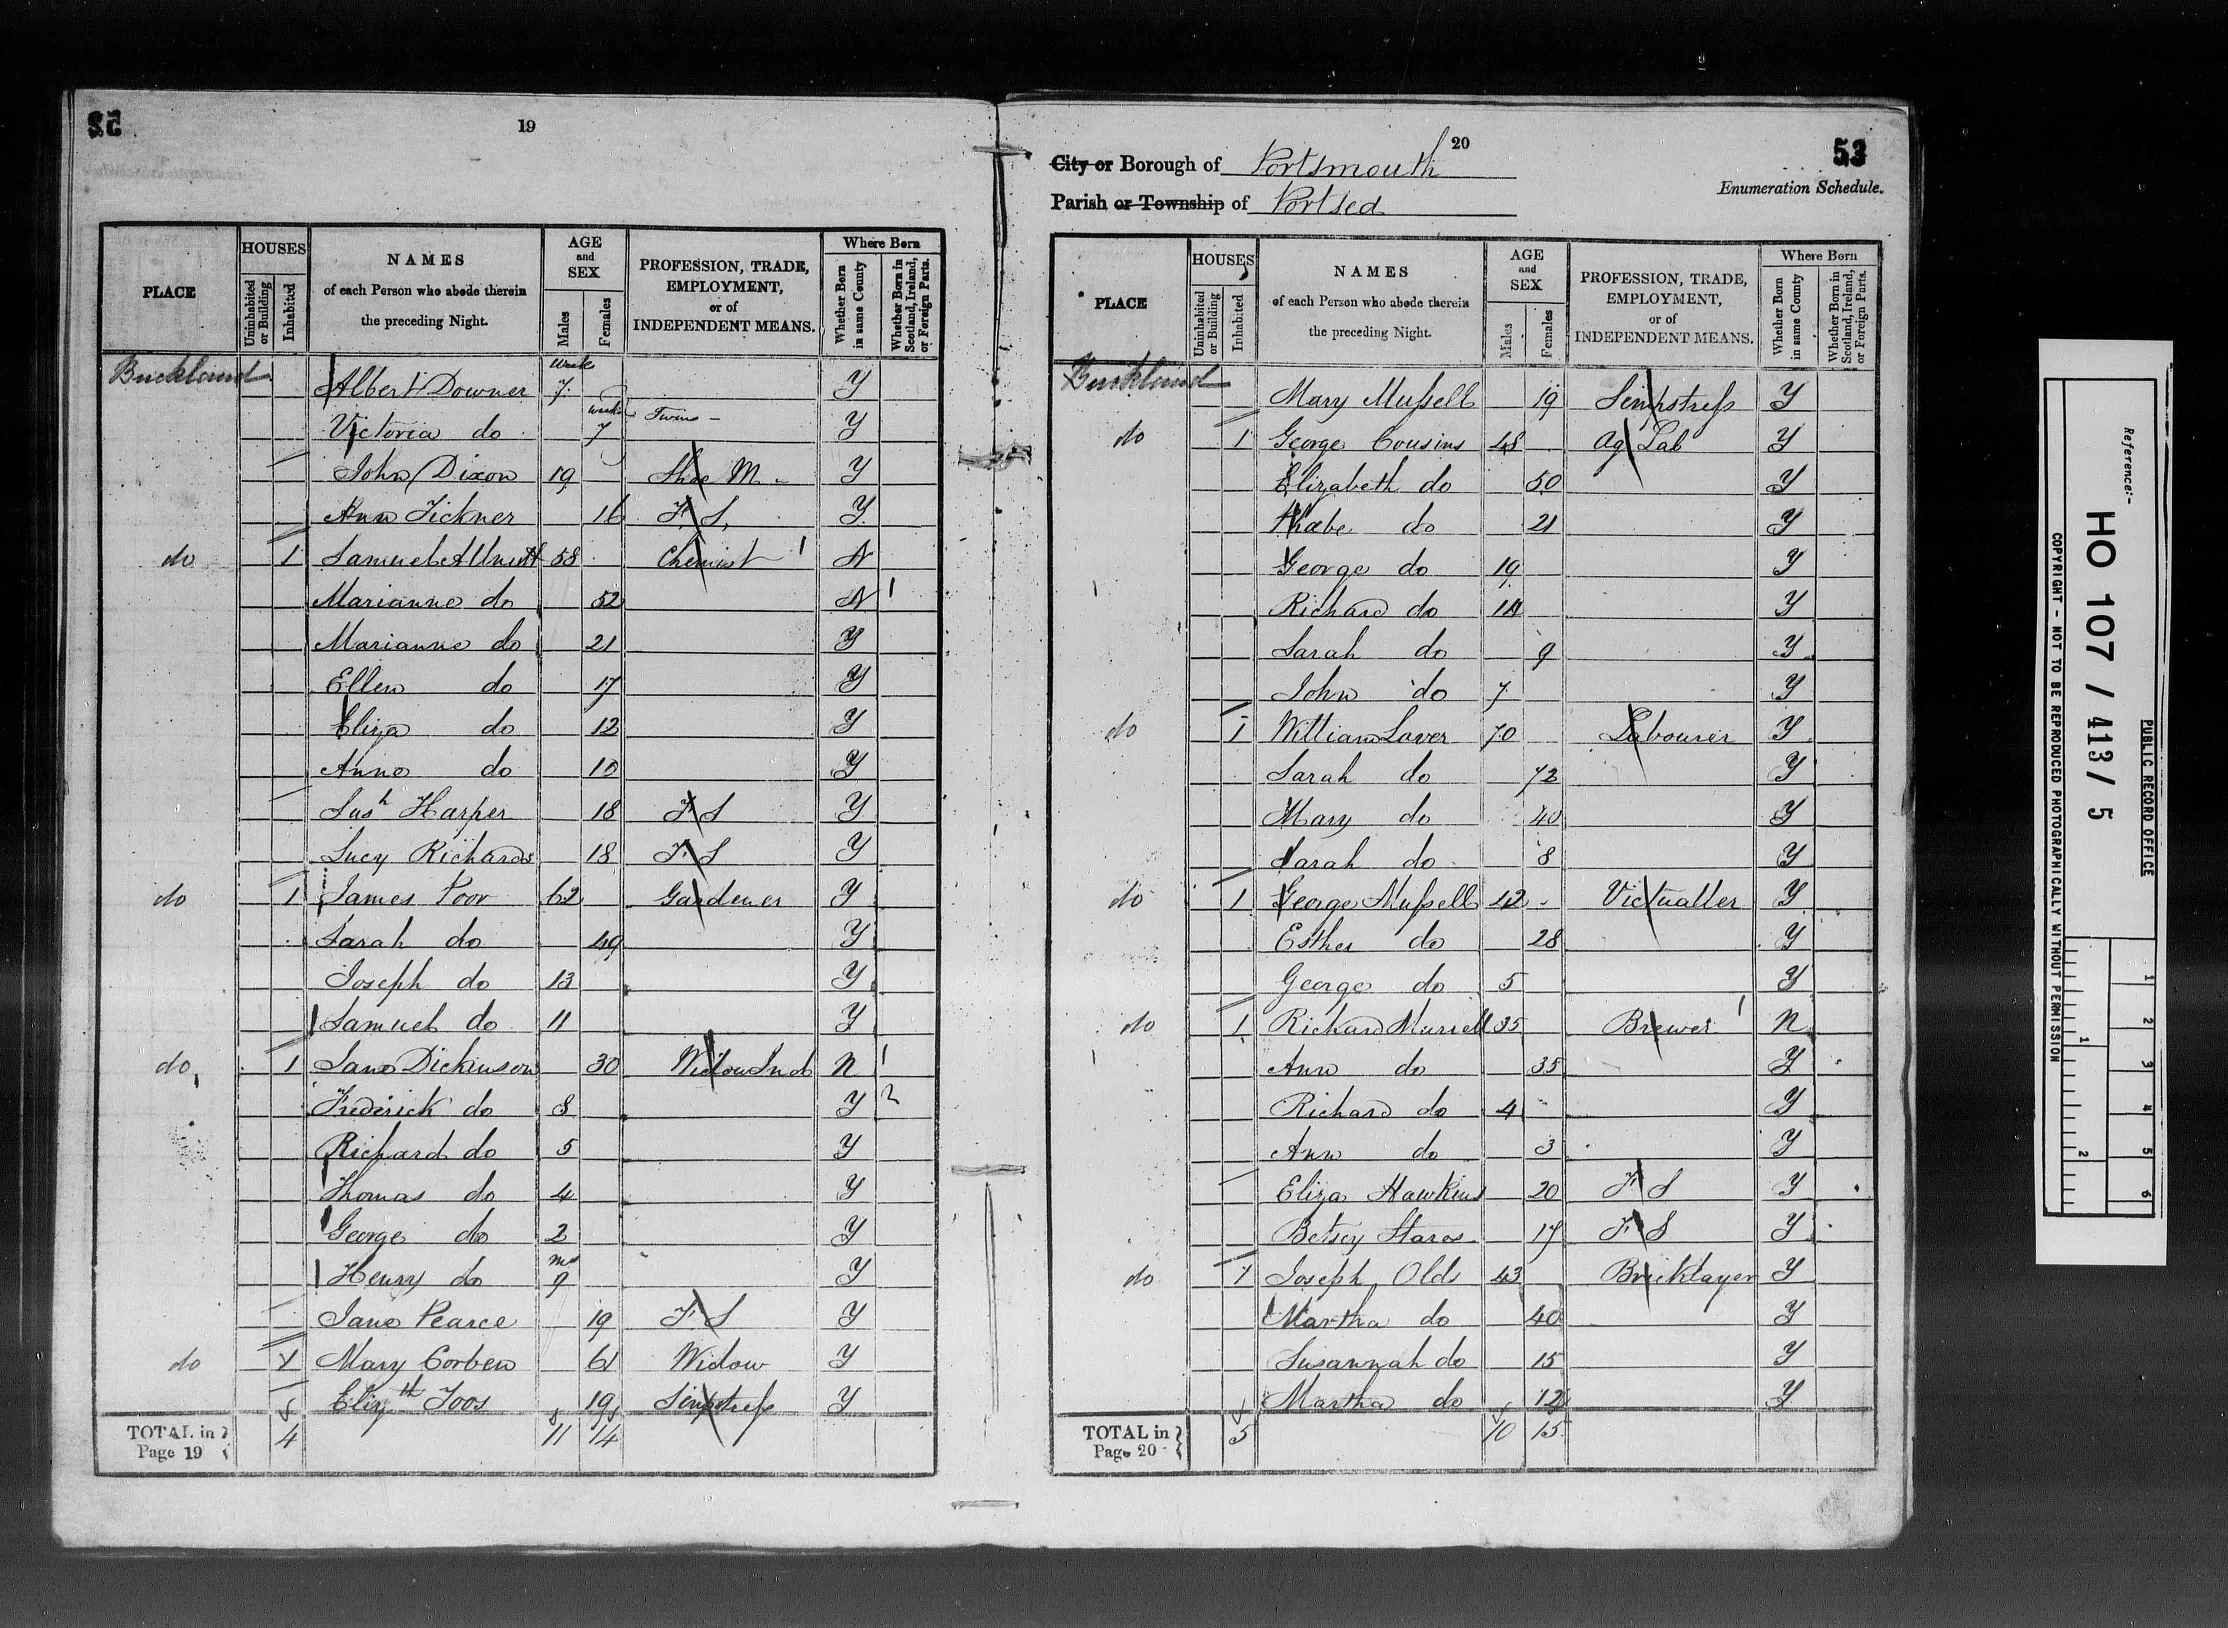 19
HOUSES
AGE and SEX
Where Born
PLACE
Uninhabited or Building
Inhabited
NAMES of each Person who abode therein the preceding Night.
Males
Females
PROFESSION, TRADE, EMPLOYMENT, or of INDEPENDENT MEANS.
Whether Born in same County
Whether Born in Scotland, Ireland, or Foreign Parts.
Buckland Albert Downer 7 week Y
Victoria do 7 weeks Twins Y
John Dixon 19 Shoe M Y
Ann Tickner 16 F. S. Y
do 1 Samuel 58 Chemist N
Marianne do 52 N
Marianne do 21 Y
Ellen do 17 Y
Eliza do 12 Y
Anne do 10 Y
Sush Harper 18 F S Y
Lucy Richards 18 F. S Y
do 1 James Poor 62 Gardener Y
Sarah do 49 Y
Joseph do 13 Y
Samuel do 11 Y
do 1 Jane Dickinson 30 Widow Ind N
Frederick do 8 Y
Richard do 5 Y
Thomas do 4 Y
George do 2 Y
Henry do 9 mo Y
Jane Pearce 19 F S Y
do 1 Mary Corben 61 Widow Y
Elizth Toos 19 Sempstress Y
TOTAL in Page 19 4 11 14
20
53
City or Borough of Portsmouth
Enumeration Schedule.
Parish or Township of Portsea
HOUSES
AGE and SEX
Where Born
PLACE
Uninhabited or Building
Inhabited
NAMES of each Person who abode therein the preceding Night.
Males
Females
PROFESSION, TRADE, EMPLOYMENT, or of INDEPENDENT MEANS.
Whether Born in same County
Whether Born in Scotland, Ireland, or Foreign Parts.
Buckland Mary Mussell 19 Sempstress Y
do 1 George Cousins 48 Ag Lab Y
Elizabeth do 50 Y
Phœbe do 21 Y
George do 19 Y
Richard do 14 Y
Sarah do 9 Y
John do 7 Y
do 1 William Laver 70 Labourer Y
Sarah do 72 Y
Mary do 40 Y
Sarah do 8 Y
do 1 George Mussell 42 Victualler Y
Esther do 28 Y
George do 5 Y
do 1 Richard Muriell 35 Brewer N
Ann do 35 Y
Richard do 4 Y
Ann do 3 Y
Eliza Hawkins 20 F S Y
Betsey Stares 17 F S Y
do 1 Joseph Olds 43 Bricklayer Y
Martha do 40 Y
Susannah do 15 Y
Martha do 12 Y
TOTAL in Page 20 5 10 15
Reference:-
HO 107 / 413 / 5
PUBLIC RECORD OFFICE
COPYRIGHT - NOT TO BE REPRODUCED PHOTOGRAPHICALLY WITHOUT PERMISSION
1 2 3 4 5 6
1 2